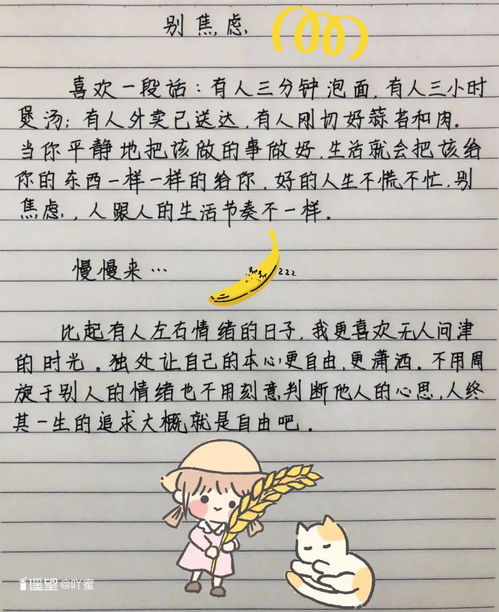 别焦虑
喜欢一段话：有人三分钟泡面，有人三小时
煲汤；有人外卖已送达，有人刚切好蒜苔和肉。
当你平静地把该做的事做好，生活就会把该给
你的东西一样一样的给你，好的人生不慌不忙，别
焦虑，人跟人的生活节奏不一样。
慢慢来…
zzz
比起有人左右情绪的日子，我更喜欢无人问津
的时光。独处让自己的本心更自由，更潇洒。不用周
旋于别人的情绪也不用刻意判断他人的心思，人终
其一生的追求大概就是自由吧。
遥望@吖蜜